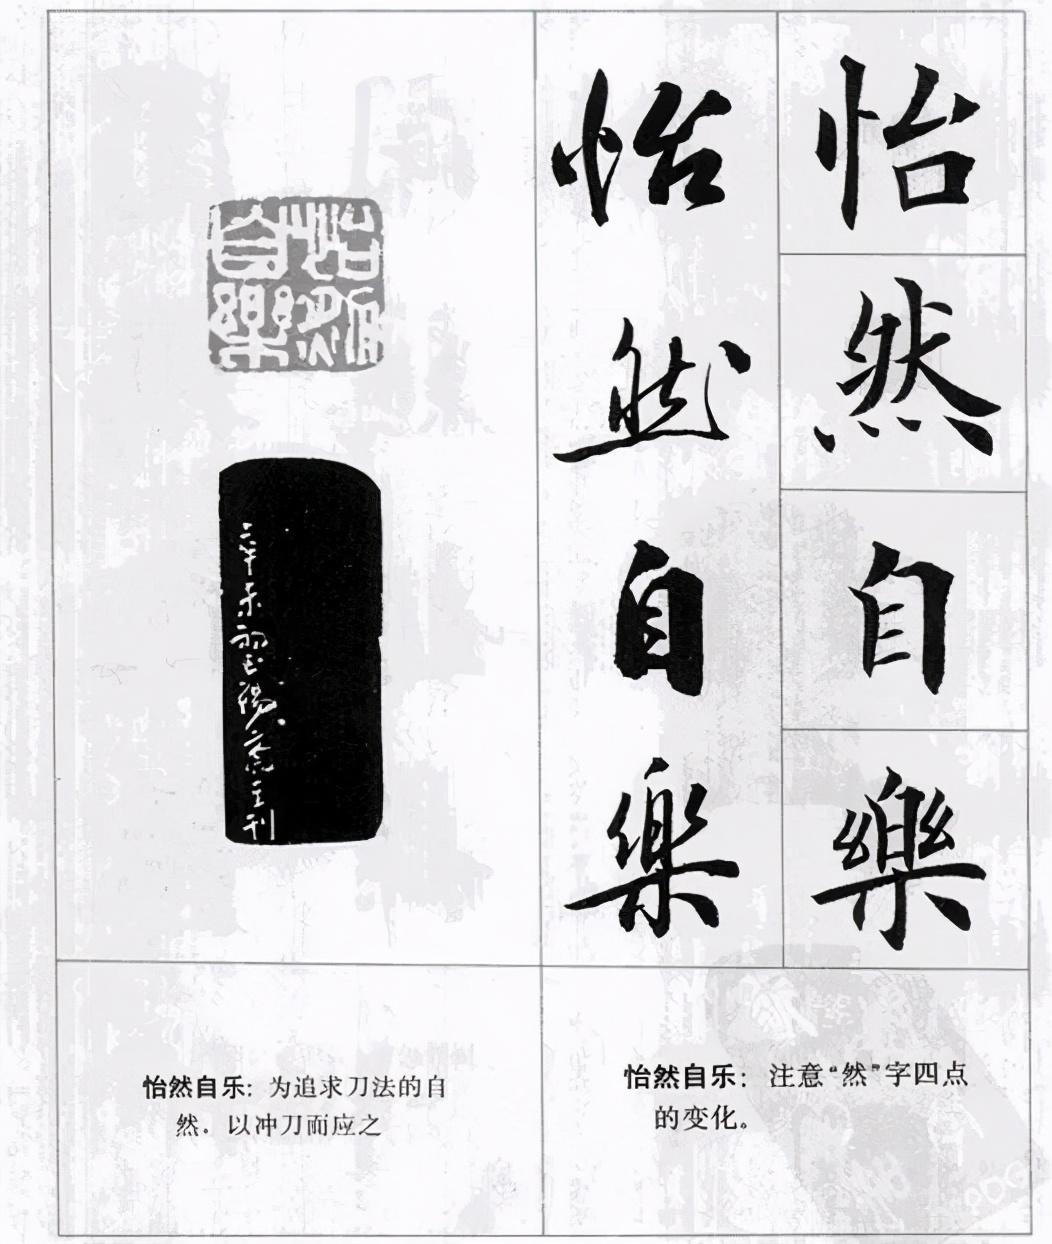 怡然自樂
怡然自樂
怡然自樂
辛未 主刊
怡然自乐：注意“然”字四点
的变化。
怡然自乐：为追求刀法的自
然。以冲刀而应之
PDG